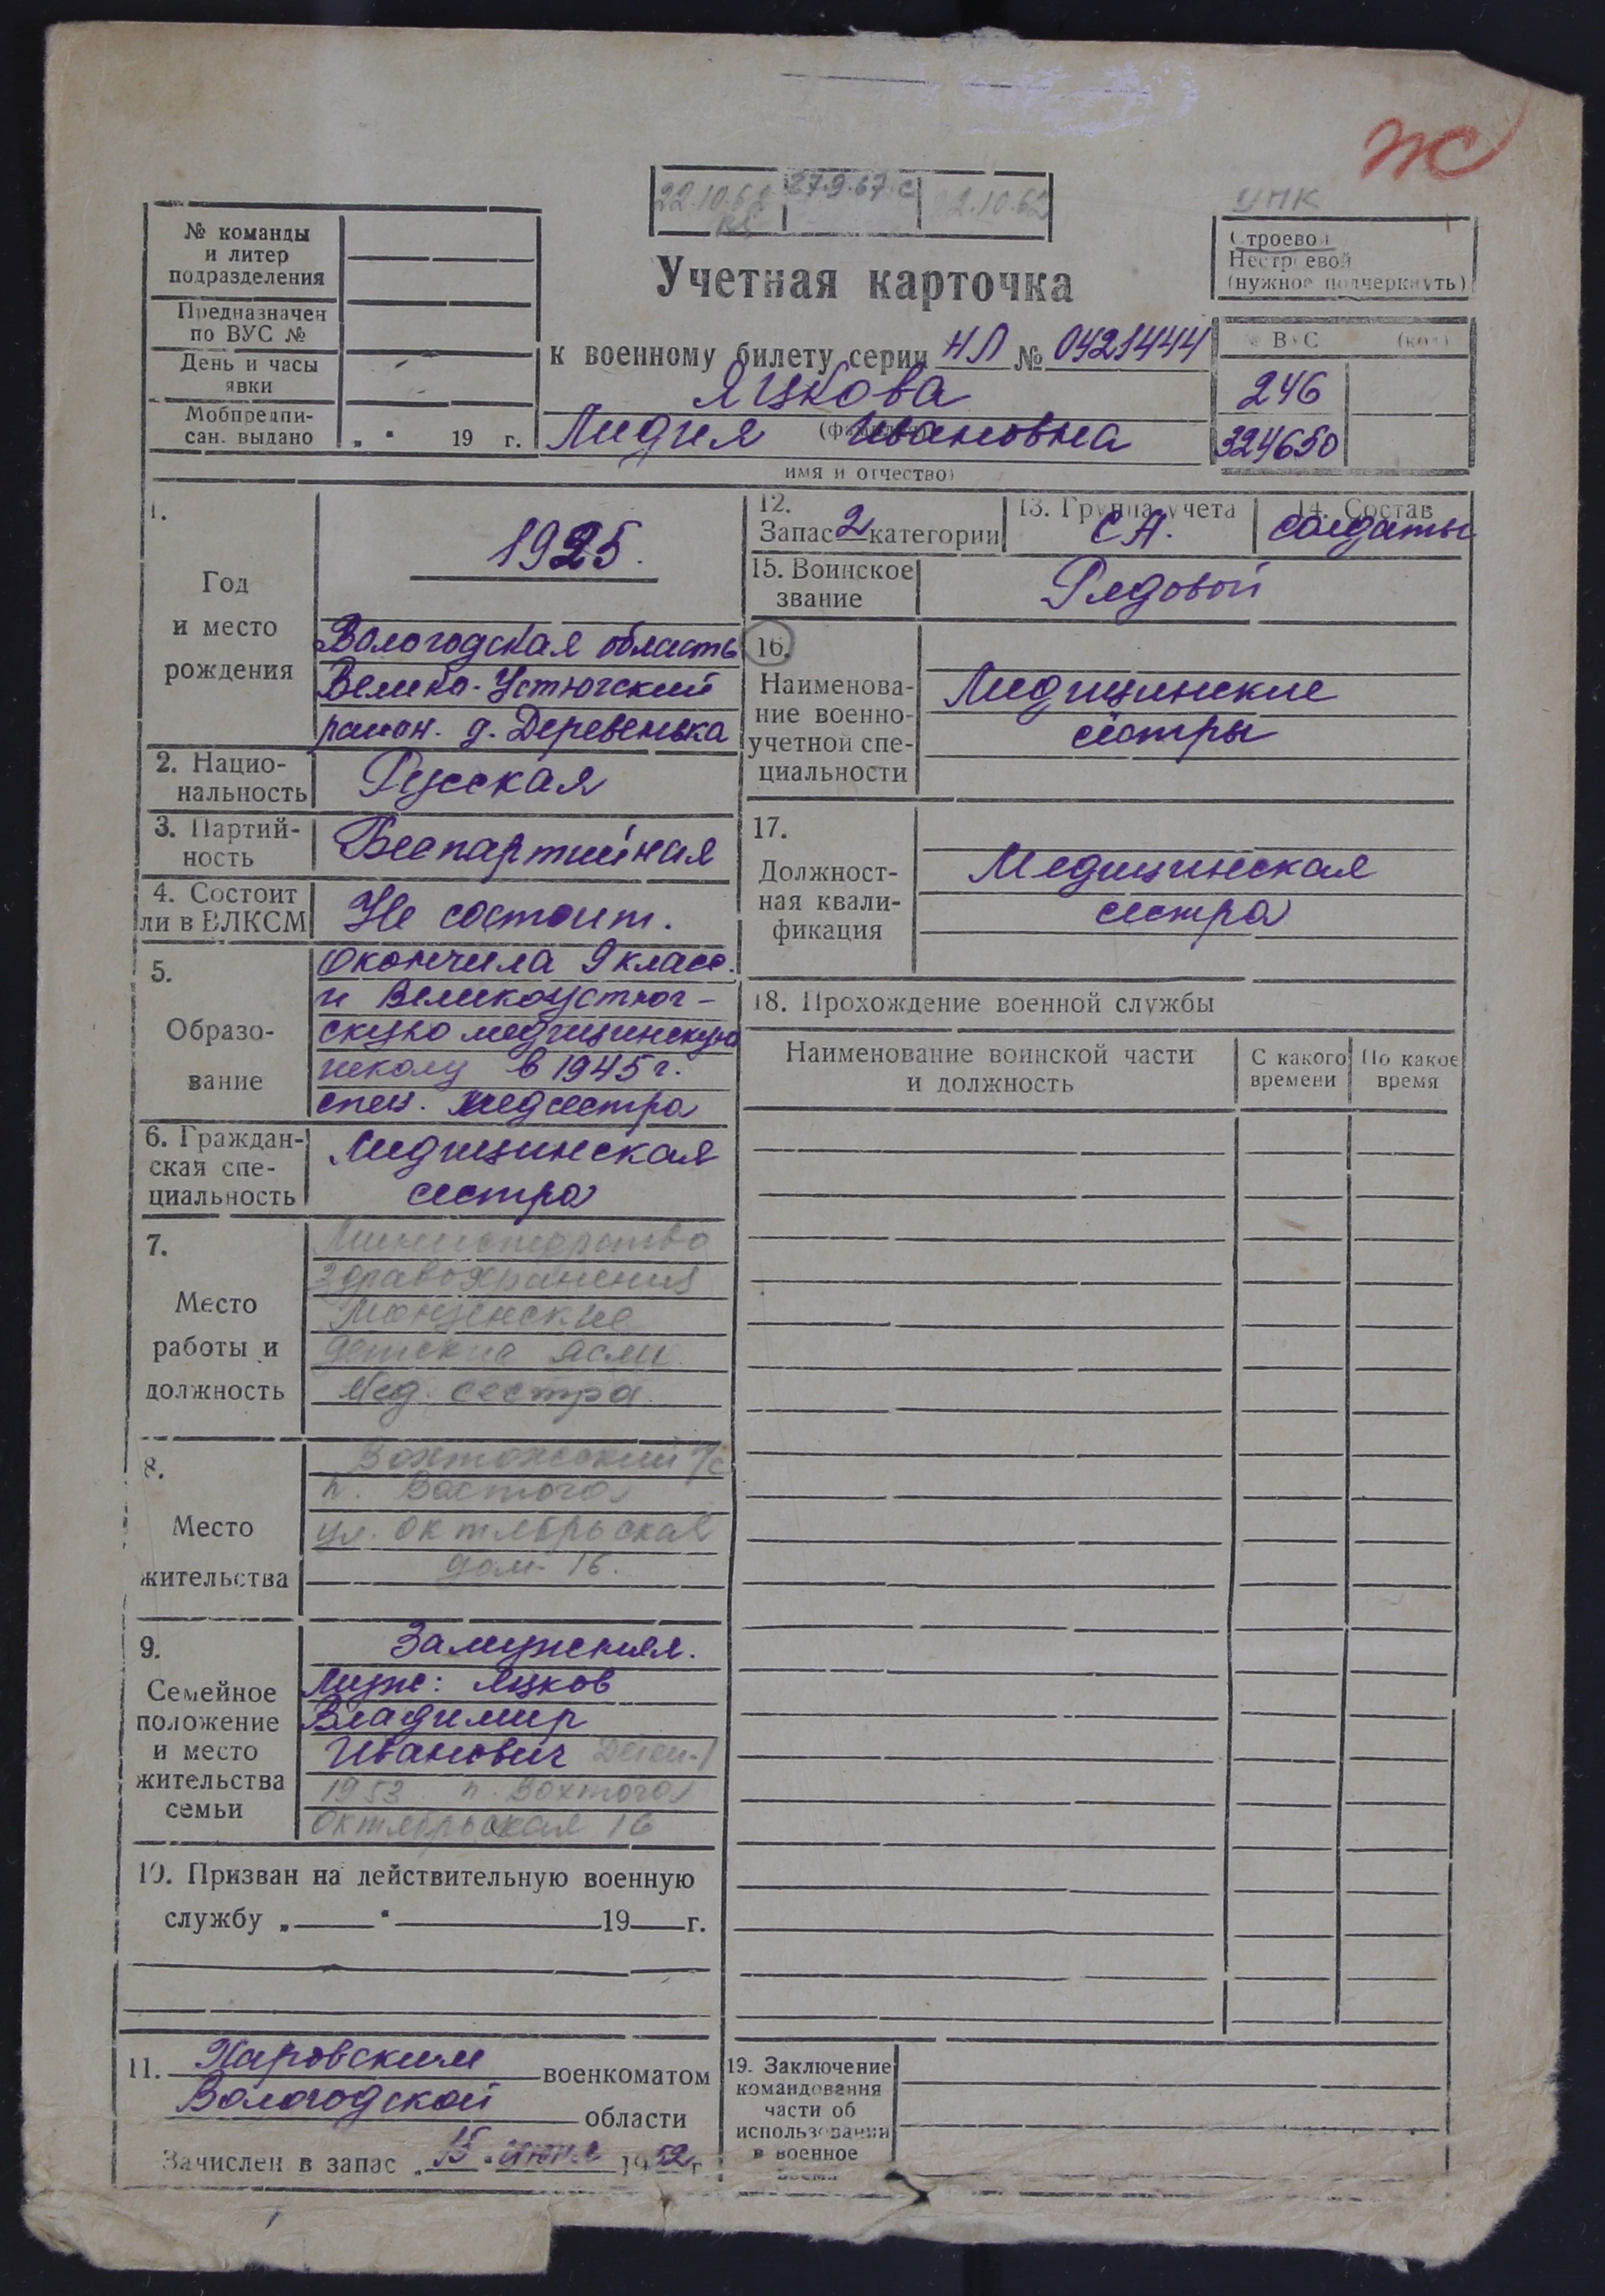 Ж
22.10.62
27.9.67 с
2.10.62
УПК
Строевой
Нестроевой
(нужное подчеркнуть)
№ команды
и литер
подразделения
Предназначен
по ВУС №
День и часы
явки
Мобпредпи-
сан. выдано „ “ 19 г.
Учетная карточка
к военному билету серии НЛ № 0421444
Яцкова
(фамилия)
Лидия Ивановна
имя и отчество)
№ ВУС (код)
246
324650
1.
Год
и место
рождения
1925.
Вологодская область
Велико-Устюгский
район. д. Деревенька
2. Нацио-
нальность
Русская
3. Партий-
ность
Беспартийная
4. Состоит
ли в ВЛКСМ
Не состоит.
5.
Образо-
вание
Окончила 9 класс.
и Великоустюг-
скую медицинскую
школу в 1945 г.
спец. медсестра
6. Граждан-
ская спе-
циальность
Медицинская
сестра
7.
Место
работы и
должность
Министерство
Здравохранения
Монзенские
детские ясли
Мед. сестра
8.
Место
жительства
Вохтожский п/с
п. Вохтога
ул. Октябрьская
дом-16.
9.
Семейное
положение
и место
жительства
семьи
Замужняя.
Муж: Яцков
Владимир
Иванович
1953 п. Вохтога
Октябрьская 16
10. Призван на действительную военную
службу „ “ 19 г.
11. Харовским военкоматом
Вологодской области
Зачислен в запас „15“ июня 1952 г.
12.
Запас 2 категории
13. Группа учета
СА.
14. Состав
солдаты
15. Воинское
звание
Рядовой
16.
Наименова-
ние военно-
учетной спе-
циальности
Медицинские
сёстры
17.
Должност-
ная квали-
фикация
Медицинская
сестра
18. Прохождение военной службы
Наименование воинской части
и должность
С какого
времени
По какое
время
19. Заключение
командования
части об
использовании
в военное
время